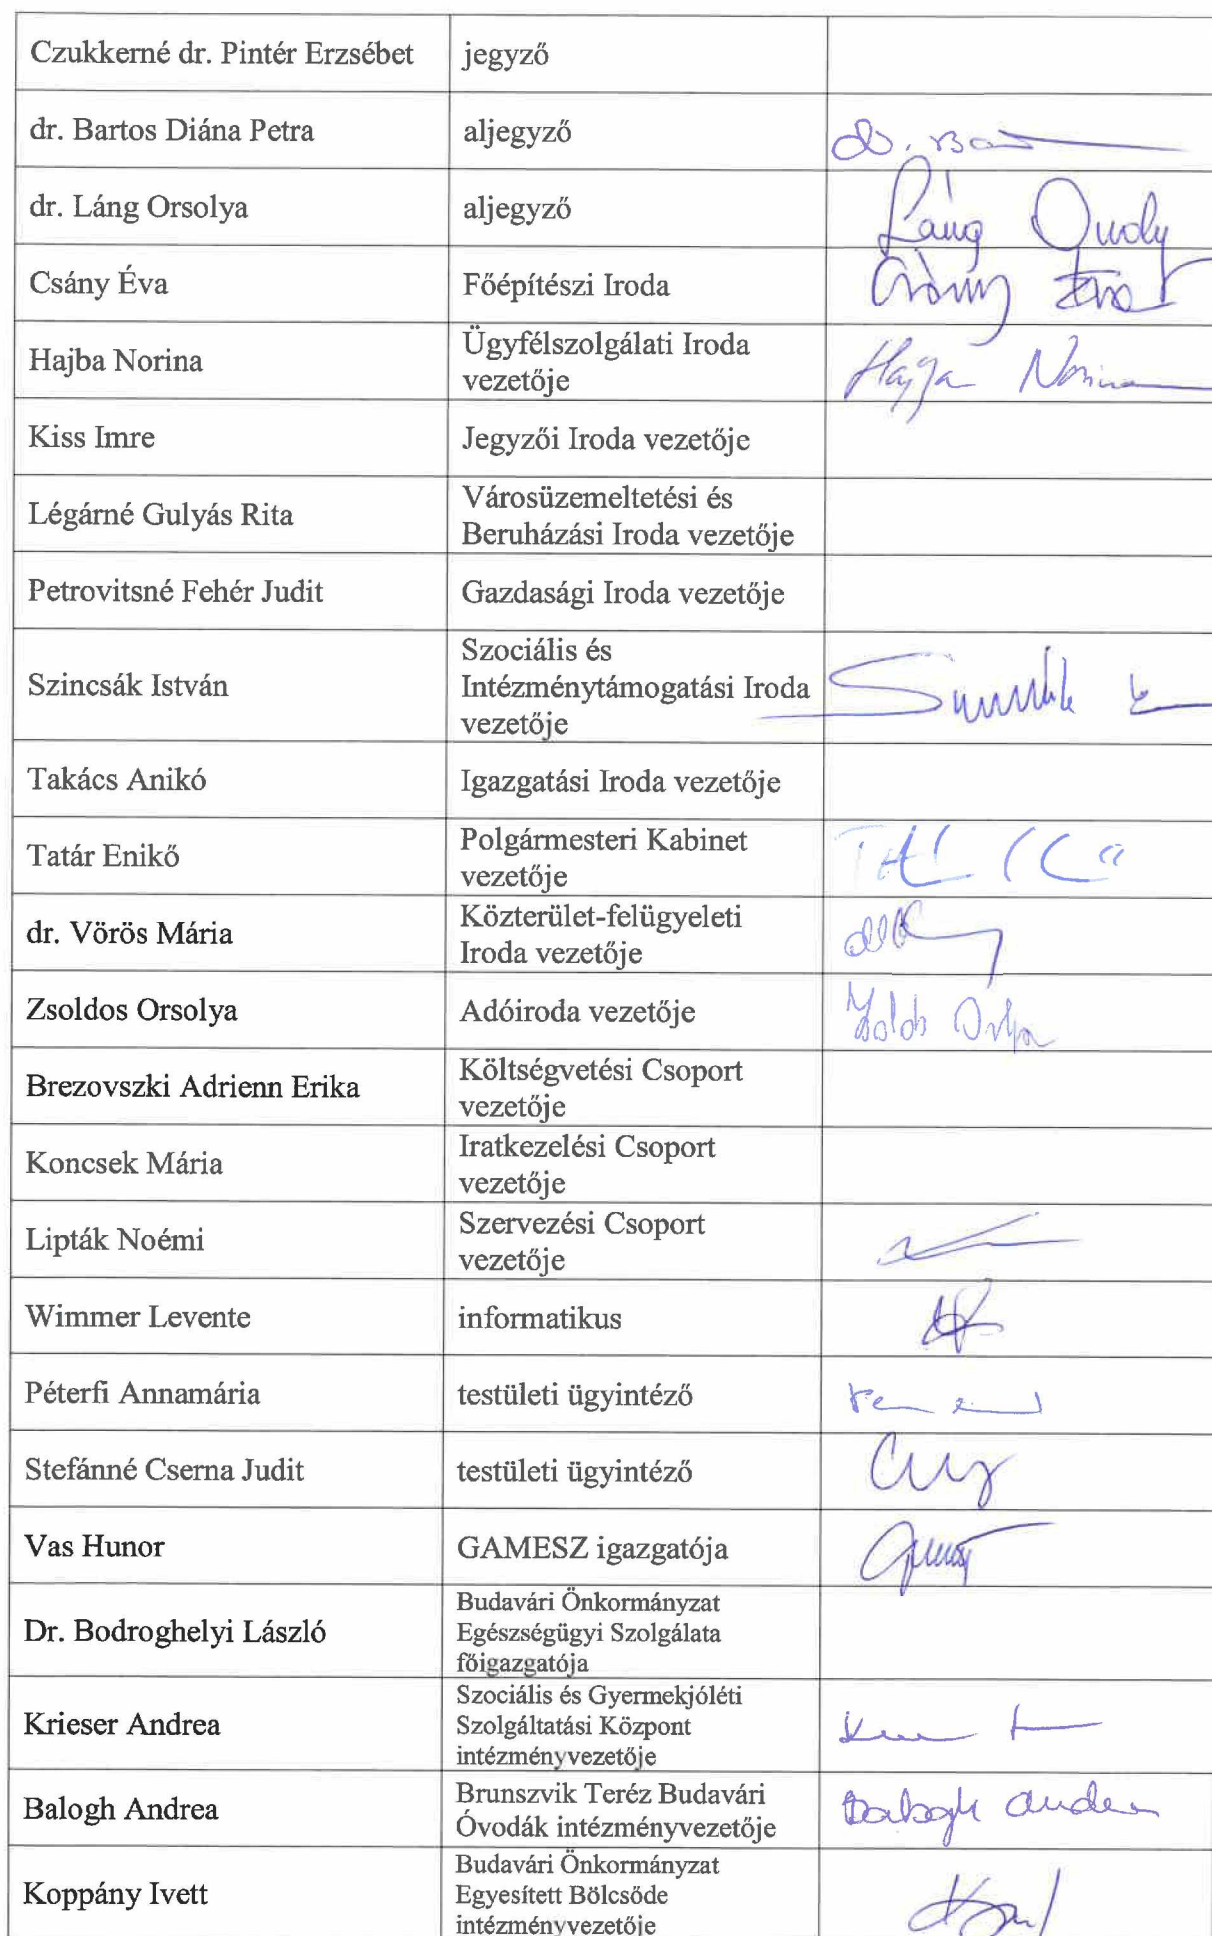 Czukkerné dr. Pintér Erzsébet jegyző
dr. Bartos Diána Petra aljegyző
dr. Láng Orsolya aljegyző
Láng
Csány Éva Főépítészi Iroda
Csány Éva
Hajba Norina Ügyfélszolgálati Iroda
vezetője
Hajba Norina
Kiss Imre Jegyzői Iroda vezetője
Légárné Gulyás Rita Városüzemeltetési és
Beruházási Iroda vezetője
Petrovitsné Fehér Judit Gazdasági Iroda vezetője
Szincsák István Szociális és
Intézménytámogatási Iroda
vezetője
Takács Anikó Igazgatási Iroda vezetője
Tatár Enikő Polgármesteri Kabinet
vezetője
dr. Vörös Mária Közterület-felügyeleti
Iroda vezetője
Zsoldos Orsolya Adóiroda vezetője
Brezovszki Adrienn Erika Költségvetési Csoport
vezetője
Koncsek Mária Iratkezelési Csoport
vezetője
Lipták Noémi Szervezési Csoport
vezetője
Wimmer Levente informatikus
Péterfi Annamária testületi ügyintéző
Stefánné Cserna Judit testületi ügyintéző
Vas Hunor GAMESZ igazgatója
Dr. Bodroghelyi László Budavári Önkormányzat
Egészségügyi Szolgálata
főigazgatója
Krieser Andrea Szociális és Gyermekjóléti
Szolgáltatási Központ
intézményvezetője
Balogh Andrea Brunszvik Teréz Budavári
Óvodák intézményvezetője
Balogh Andrea
Koppány Ivett Budavári Önkormányzat
Egyesített Bölcsőde
intézményvezetője